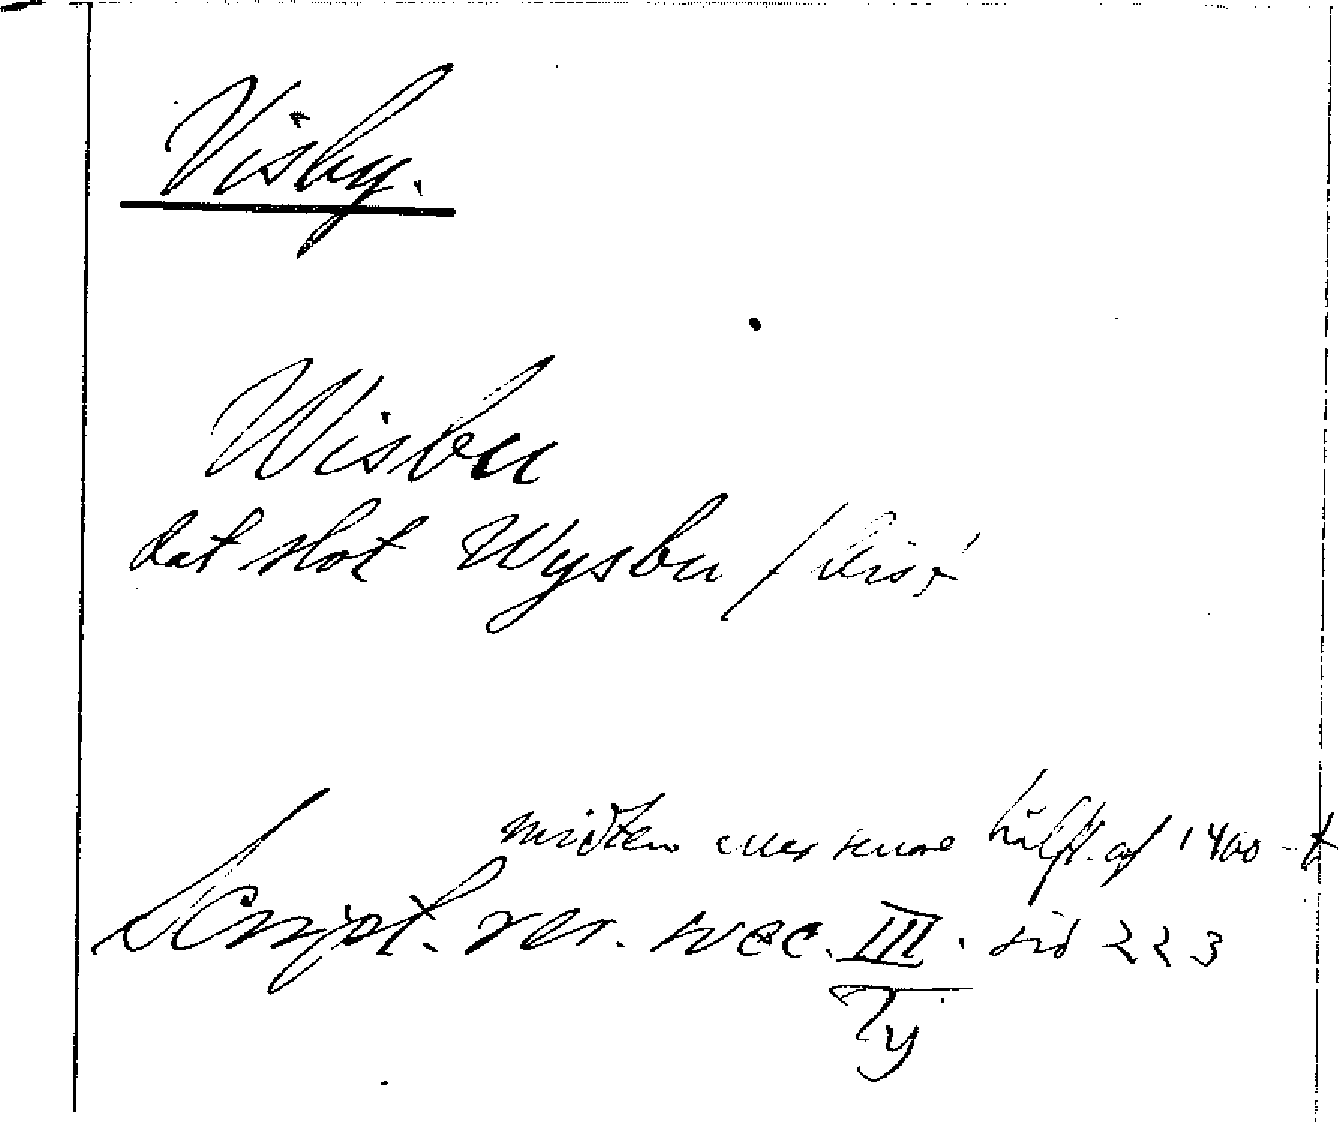 Visby.
Wisbu
dat slot Wysbu /
midten eller senare hälft. af 1400-t
Script. rer. svec. III. sid 223
Ty